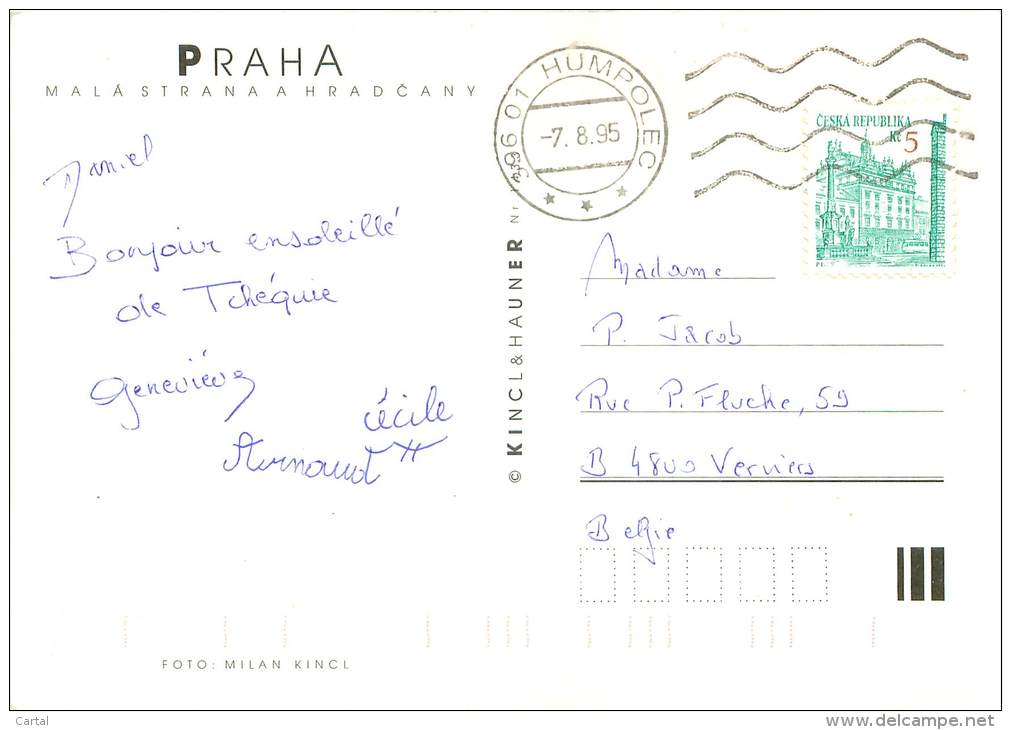 PRAHA
MALÁ STRANA A HRADČANY
Daniel
Bonjour ensoleillé
de Tchéquie
Geneviève
Cécile
Arnaud
FOTO: MILAN KINCL
© KINCL & HAUNER Nr
396 01 HUMPOLEC
-7. 8. 95
ČESKÁ REPUBLIKA
Kč 5
Madame
P. Jacob
Rue P. Fluche, 59
B 4800 Verviers
Belgie
Cartal
www.delcampe.net